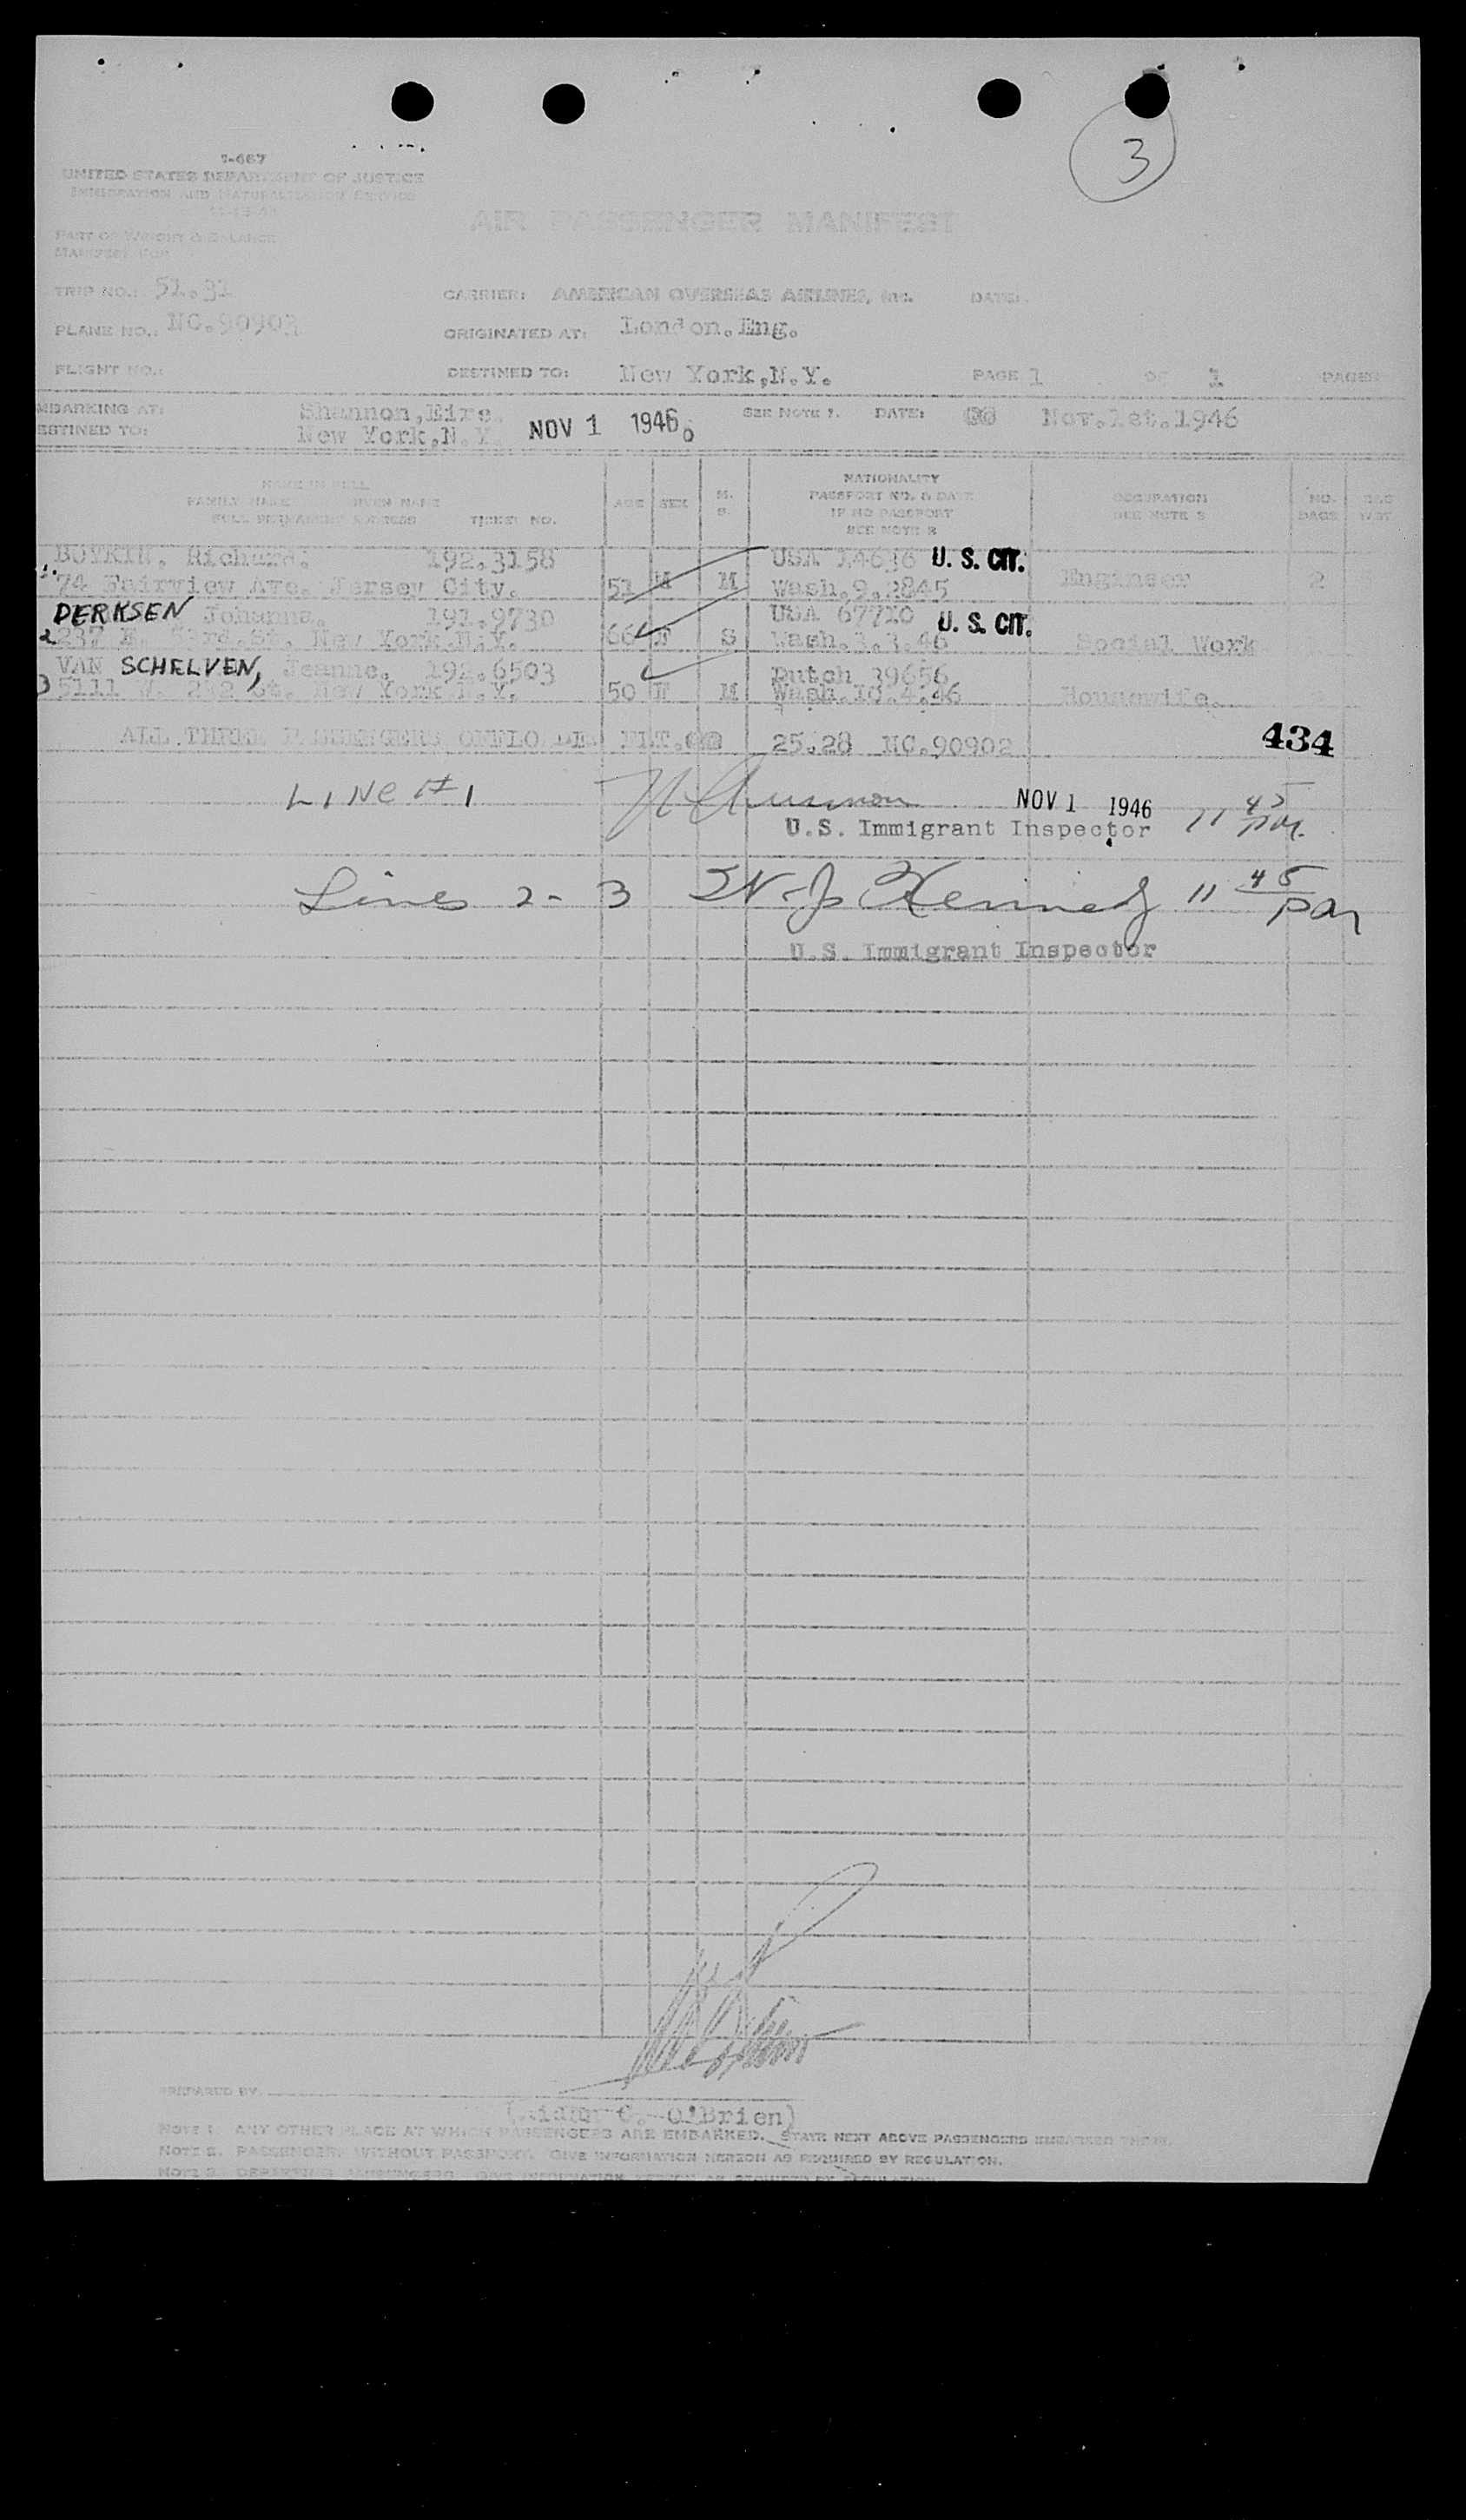 3
I-667
UNITED STATES DEPARTMENT OF JUSTICE
IMMIGRATION AND NATURALIZATION SERVICE
AIR PASSENGER MANIFEST
PART OF WEIGHT & BALANCE
MANIFEST FOR
TRIP NO.: 51.31 CARRIER: AMERICAN OVERSEAS AIRLINES, Inc. DATE:
PLANE NO.: NC.90903 ORIGINATED AT: London.Eng.
FLIGHT NO.: DESTINED TO: New York,N.Y. PAGE 1 OF 1 PAGES
EMBARKING AT: Shannon,Eire. SEE NOTE 1. DATE: Nov.1st.1946
DESTINED TO: New York,N.Y. NOV 1 1946
NAME IN FULL
FAMILY NAME GIVEN NAME
FULL PERMANENT ADDRESS TICKET NO.
AGE SEX M. S.
NATIONALITY
PASSPORT NO. & DATE
IF NO PASSPORT
SEE NOTE 2
OCCUPATION
SEE NOTE 3
NO. BAGS
BAG WGT.
1. BOYKIN, Richard. 192.3158 USA 14636 U. S. CIT.
74 Fairview Ave. Jersey City. 51 M M Wash.9.2845 Engineer 2
DERKSEN Johanna. 191.9730 USA 67710 U. S. CIT.
2 237 E. St. New York.N.Y. 66 F S Wash.3.3.46 Social Work
VAN SCHELVEN, Jeanne. 192.6503 Dutch 39656
3 5111 W. 252 St. New York.N.Y. 50 F M Wash.10.4.46 Housewife.
ALL THREE PASSENGERS OFFLOADED FLT. 25.28 NC.90902 434
LINE #1 NOV 1 1946 11 45 PM.
U.S. Immigrant Inspector
Lines 2 - 3 W. J. Kennedy 11 45 pm
U.S. Immigrant Inspector
PREPARED BY
C. O'Brien)
NOTE 1. ANY OTHER PLACE AT WHICH PASSENGERS ARE EMBARKED. STATE NEXT ABOVE PASSENGERS EMBARKED THERE.
NOTE 2. PASSENGERS WITHOUT PASSPORT. GIVE INFORMATION HEREON AS REQUIRED BY REGULATION.
NOTE 3. DEPARTING PASSENGERS. GIVE INFORMATION HEREON AS REQUIRED BY REGULATION.